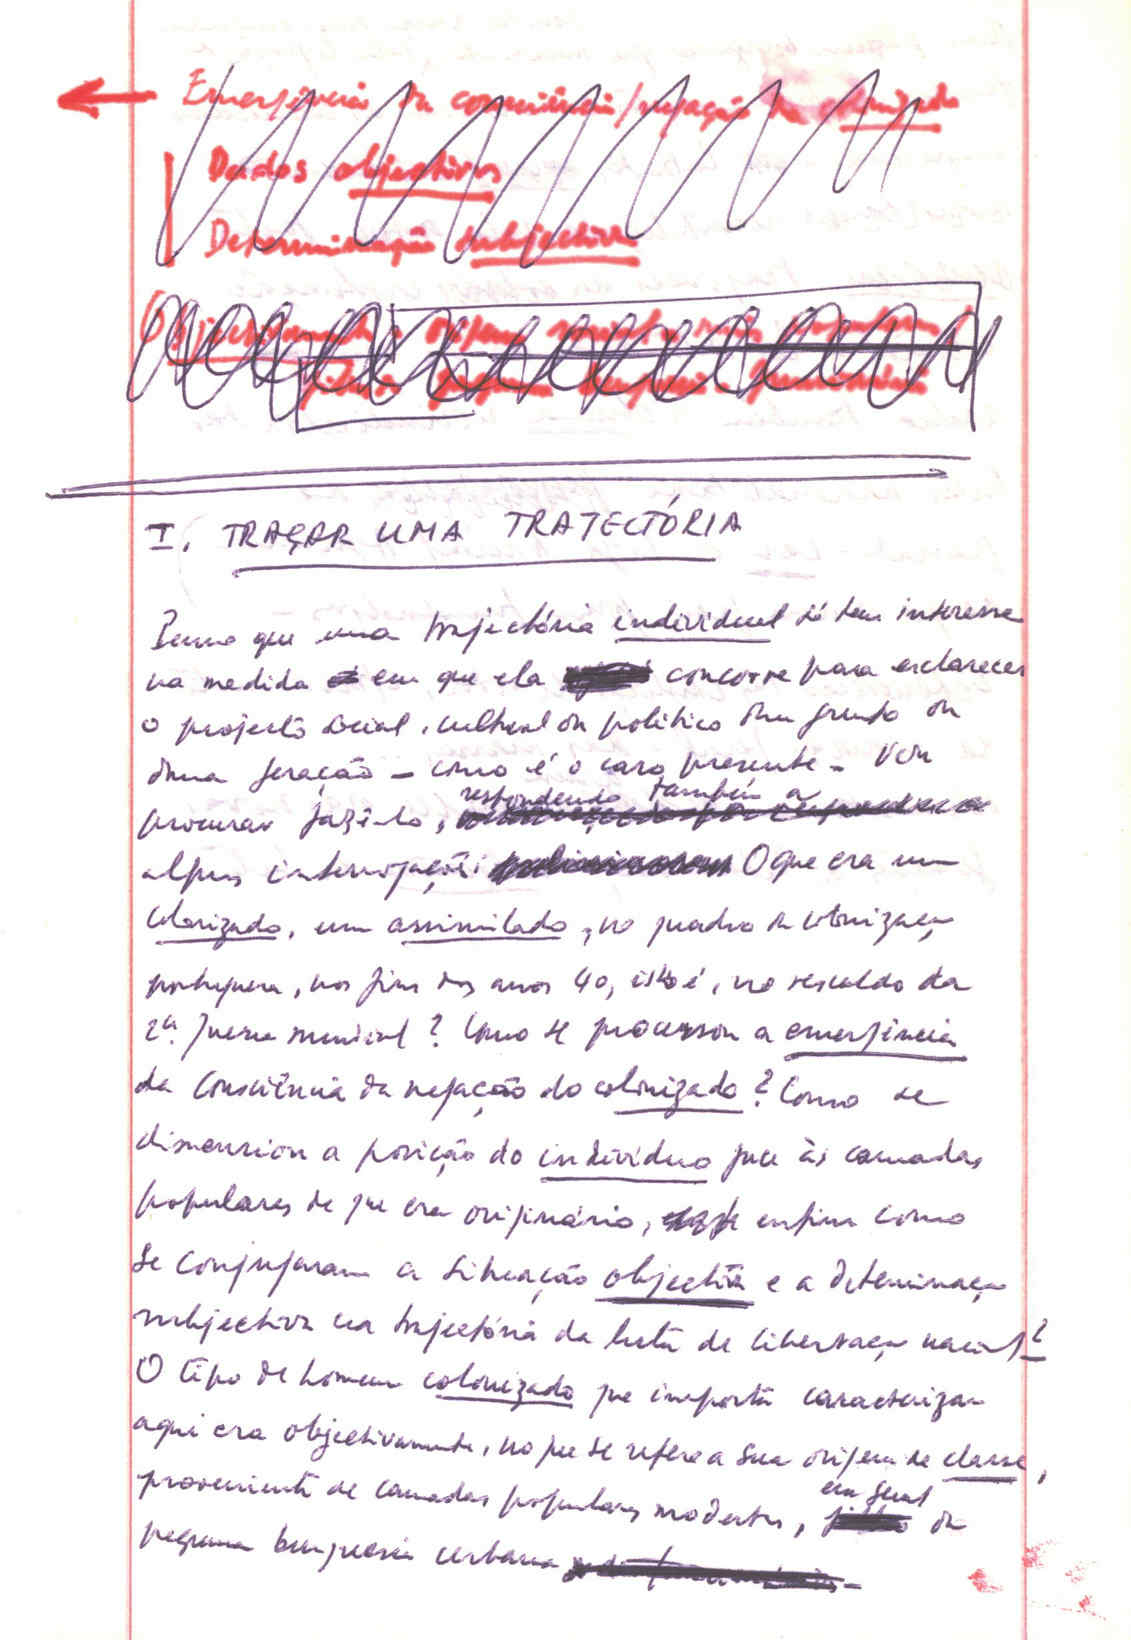 Emergência da consciência/negação do colonizado
Dados objectivos
Determinação subjectiva
origem social
I. TRAÇAR UMA TRAJECTÓRIA
Penso que uma trajectória individual só tem interesse
na medida em que ela concorre para esclarecer
o projecto social, cultural ou político dum grupo ou
duma geração – como é o caso presente – Vou
respondendo também a
procurar fazê-lo,
algumas interrogações: O que era um
colonizado, um assimilado, no quadro da colonização
portuguesa, nos fins dos anos 40, isto é, no rescaldo da
2ª. guerra mundial? Como se processou a emergência
da consciência da negação do colonizado? Como se
dimensiou a posição do indivíduo face às camadas
populares de que era originário, enfim como
se conjugaram a situação objectiva e a determinação
subjectiva na trajectória da luta de libertação nacional?
O tipo de homem colonizado que importa caracterizar
aqui era objectivamente, no que se refere a sua origem de classe,
em geral
proveniente de camadas populares modestas, da
pequena burguesia urbana